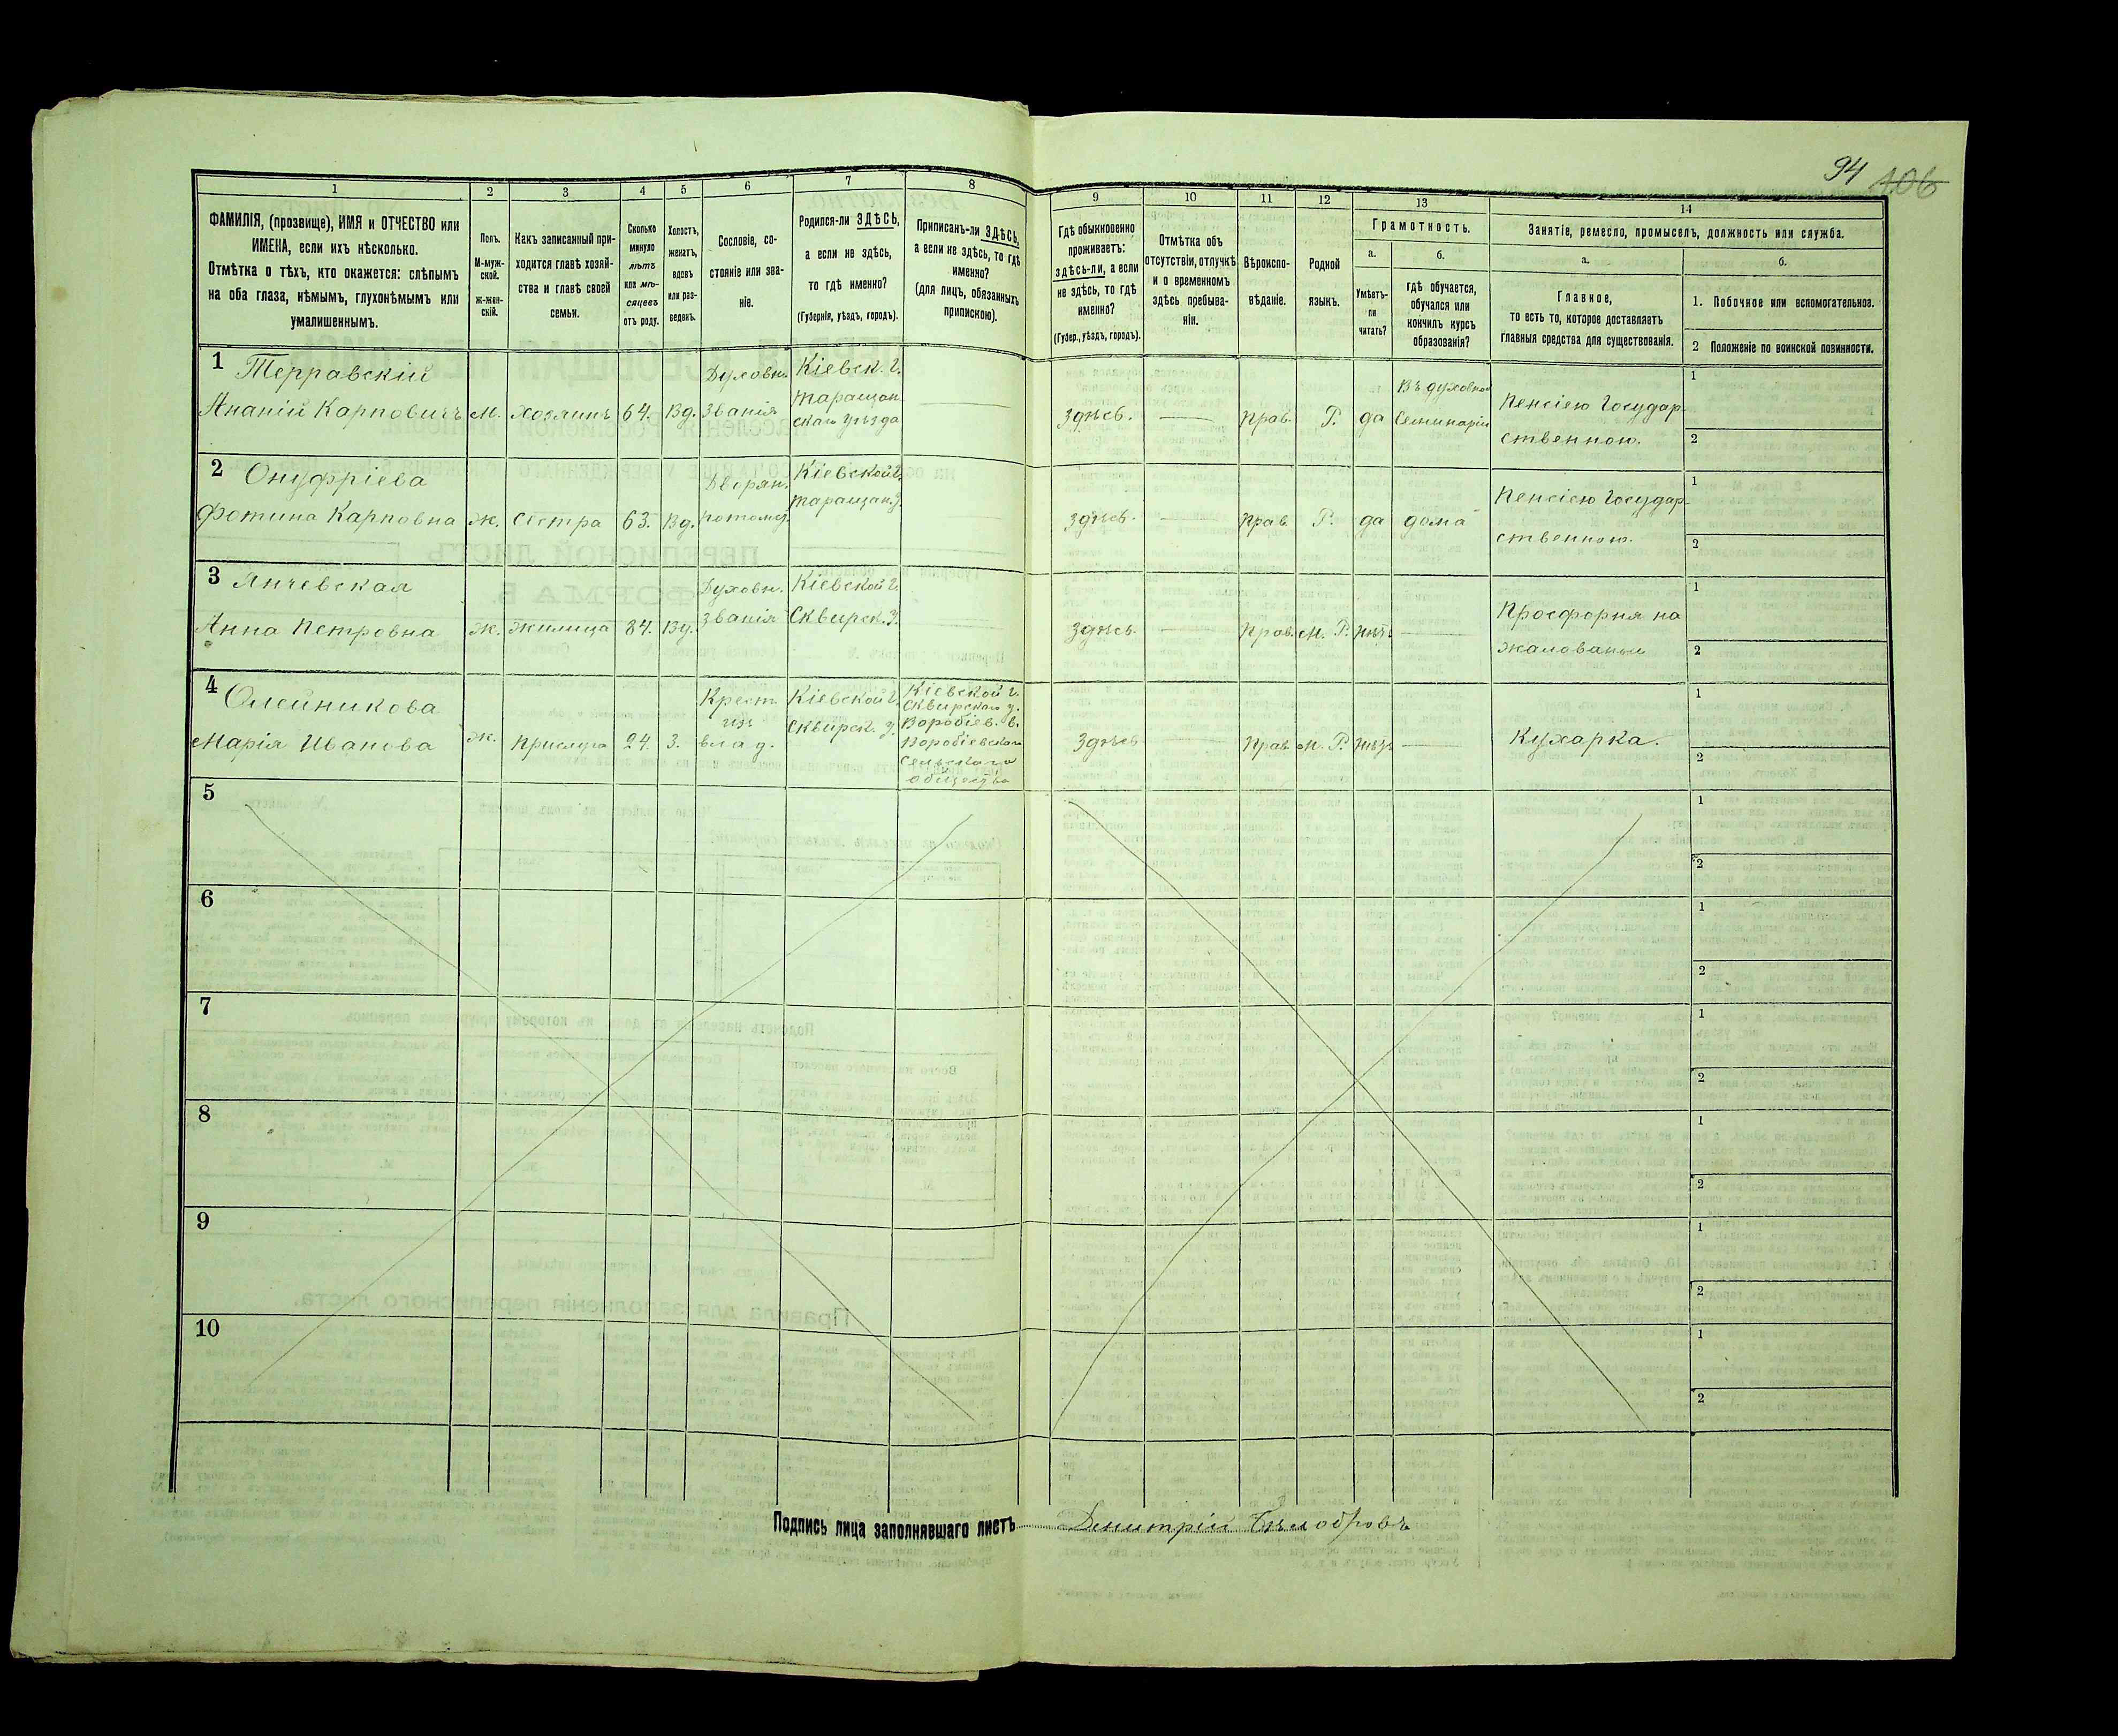 94 106
1 2 3 4 5 6 7 8 9 10 11 12 13 14
ФАМИЛІЯ, (прозвище), ИМЯ и ОТЧЕСТВО или
ИМЕНА, если ихъ нѣсколько.
Отмѣтка о тѣхъ, кто окажется: слѣпымъ
на оба глаза, нѣмымъ, глухонѣмымъ или
умалишеннымъ.
Полъ.
М-муж-
ской.
ж-жен-
скій.
Какъ записанный при-
ходится главѣ хозяй-
ства и главѣ своей
семьи.
Сколько
минуло
лѣтъ
или мѣ-
сяцевъ
отъ роду.
Холостъ,
женатъ,
вдовъ
или раз-
веденъ.
Сословіе, со-
стояніе или зва-
ніе.
Родился-ли ЗДѢСЬ,
а если не здѣсь,
то гдѣ именно?
(Губернія, уѣздъ, городъ).
Приписанъ-ли ЗДѢСЬ,
а если не здѣсь, то гдѣ
именно?
(для лицъ, обязанныхъ
припискою).
Гдѣ обыкновенно
проживаетъ:
здѣсь-ли, а если
не здѣсь, то гдѣ
именно?
(Губер., уѣздъ, городъ).
Отмѣтка объ
отсутствіи, отлучкѣ
и о временномъ
здѣсь пребыва-
ніи.
Вѣроиспо-
вѣданіе.
Родной
языкъ.
Грамотность.
а.
Умѣетъ-
ли
читать?
б.
гдѣ обучается,
обучался или
кончилъ курсъ
образованія?
Занятіе, ремесло, промыселъ, должность или служба.
а.
Главное,
то есть то, которое доставляетъ
главныя средства для существованія.
б.
1. Побочное или вспомогательное.
2 Положеніе по воинской повинности.
1 Терравскій
Ананій Карповичъ
М.
Хозяинъ
64.
Вд.
Духовн.
званія
Кіевск. г.
Таращан
скаго уѣзда
здѣсь.
Прав.
Р.
да
Въ духовной
Семинаріи
Пенсіею Государ-
ственною.
1
2
2 Онуфріева
Фотина Карповна
Ж.
Сестра
63.
Вд.
Дворян.
потомст.
Кіевской г.
Таращан. у.
здѣсь.
Прав.
Р.
да
дома
Пенсіею Государ-
ственною.
1
2
3 Янчевская
Анна Петровна
Ж.
Жилица
84.
Вд.
Духовн.
званія
Кіевской г.
Сквирск. у.
здѣсь.
Прав.
М. Р.
нѣтъ
Просфорня на
жалованьи
1
2
4 Олейникова
Марія Иванова
Ж.
Прислуга
24.
З.
Крест.
изъ
влад.
Кіевской г.
Сквирск. у.
Кіевской г.
Сквирскаго у.
Воробіев. в.
Воробіевскаго
Сельскаго
общества
здѣсь
Прав.
М. Р.
нѣтъ
Кухарка.
1
2
5
1
2
6
1
2
7
1
2
8
1
2
9
1
2
10
1
2
Подпись лица заполнявшаго листъ Димитрій